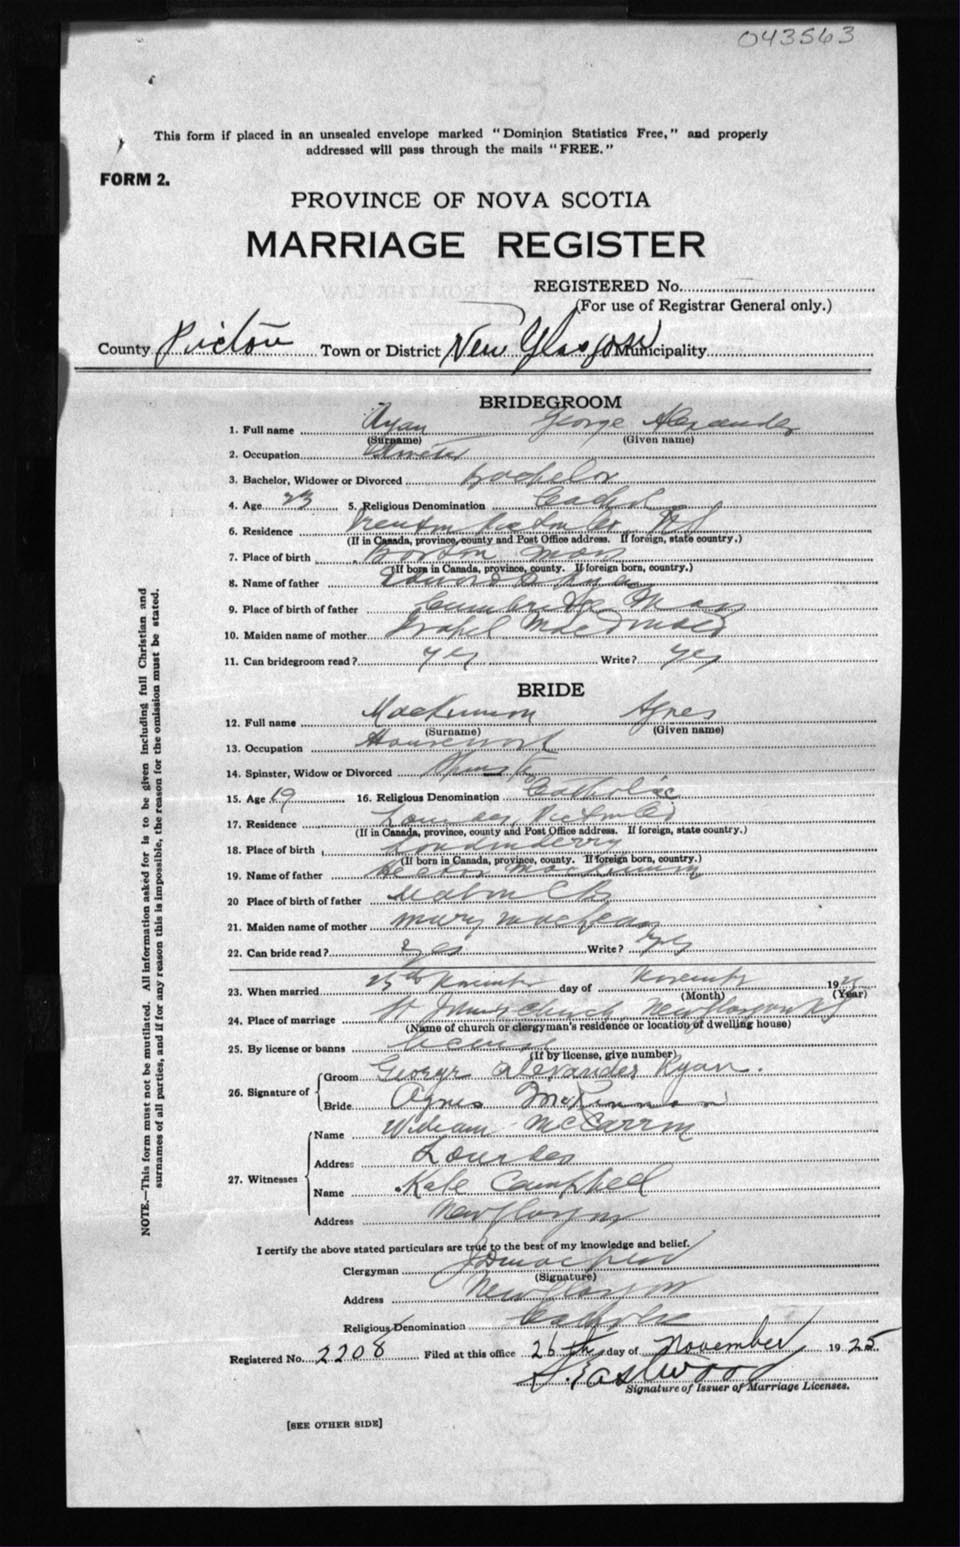 043563
This form if placed in an unsealed envelope marked "Dominion Statistics Free," and properly
addressed will pass through the mails "FREE."
FORM 2.
PROVINCE OF NOVA SCOTIA
MARRIAGE REGISTER
REGISTERED No.
(For use of Registrar General only.)
County Pictou Town or District New Glasgow Municipality
BRIDEGROOM
1. Full name Ryan George Alexander
(Surname) (Given name)
2. Occupation
3. Bachelor, Widower or Divorced bachelor
4. Age 23 5. Religious Denomination Cathol
6. Residence Trenton Pictou Co. N S
(If in Canada, province, county and Post Office address. If foreign, state country.)
7. Place of birth Boston Mass
(If born in Canada, province, county. If foreign born, country.)
8. Name of father Edward Ryan
9. Place of birth of father Cambridge Mass
10. Maiden name of mother Isabel MacDonald
11. Can bridegroom read? yes Write? yes
BRIDE
12. Full name MacKinnon Agnes
(Surname) (Given name)
13. Occupation Housework
14. Spinster, Widow or Divorced Spinster
15. Age 19 16. Religious Denomination Catholic
17. Residence Lourdes, Pictou Co
(If in Canada, province, county and Post Office address. If foreign, state country.)
18. Place of birth Londonderry
(If born in Canada, province, county. If foreign born, country.)
19. Name of father Hector MacKinnon
20 Place of birth of father Mabou C B
21. Maiden name of mother Mary MacLean
22. Can bride read? yes Write? yes
23. When married 25th November day of November 19
(Month) (Year)
24. Place of marriage St Johns church, New Glasgow N S
(Name of church or clergyman's residence or location of dwelling house)
25. By license or banns license
(If by license, give number)
26. Signature of Groom George Alexander Ryan.
Bride Agnes McKinnon
27. Witnesses Name William McCarron
Address Lourdes
Name Kate Campbell
Address New Glasgow
I certify the above stated particulars are true to the best of my knowledge and belief.
Clergyman
(Signature)
Address New Glasgow
Religious Denomination Catholic
Registered No. 2208 Filed at this office 26th day of November 1925
Eastwood
Signature of Issuer of Marriage Licenses.
[SEE OTHER SIDE]
NOTE.—This form must not be mutilated. All information asked for is to be given including full Christian and
surnames of all parties, and if for any reason this is impossible, the reason for the omission must be stated.